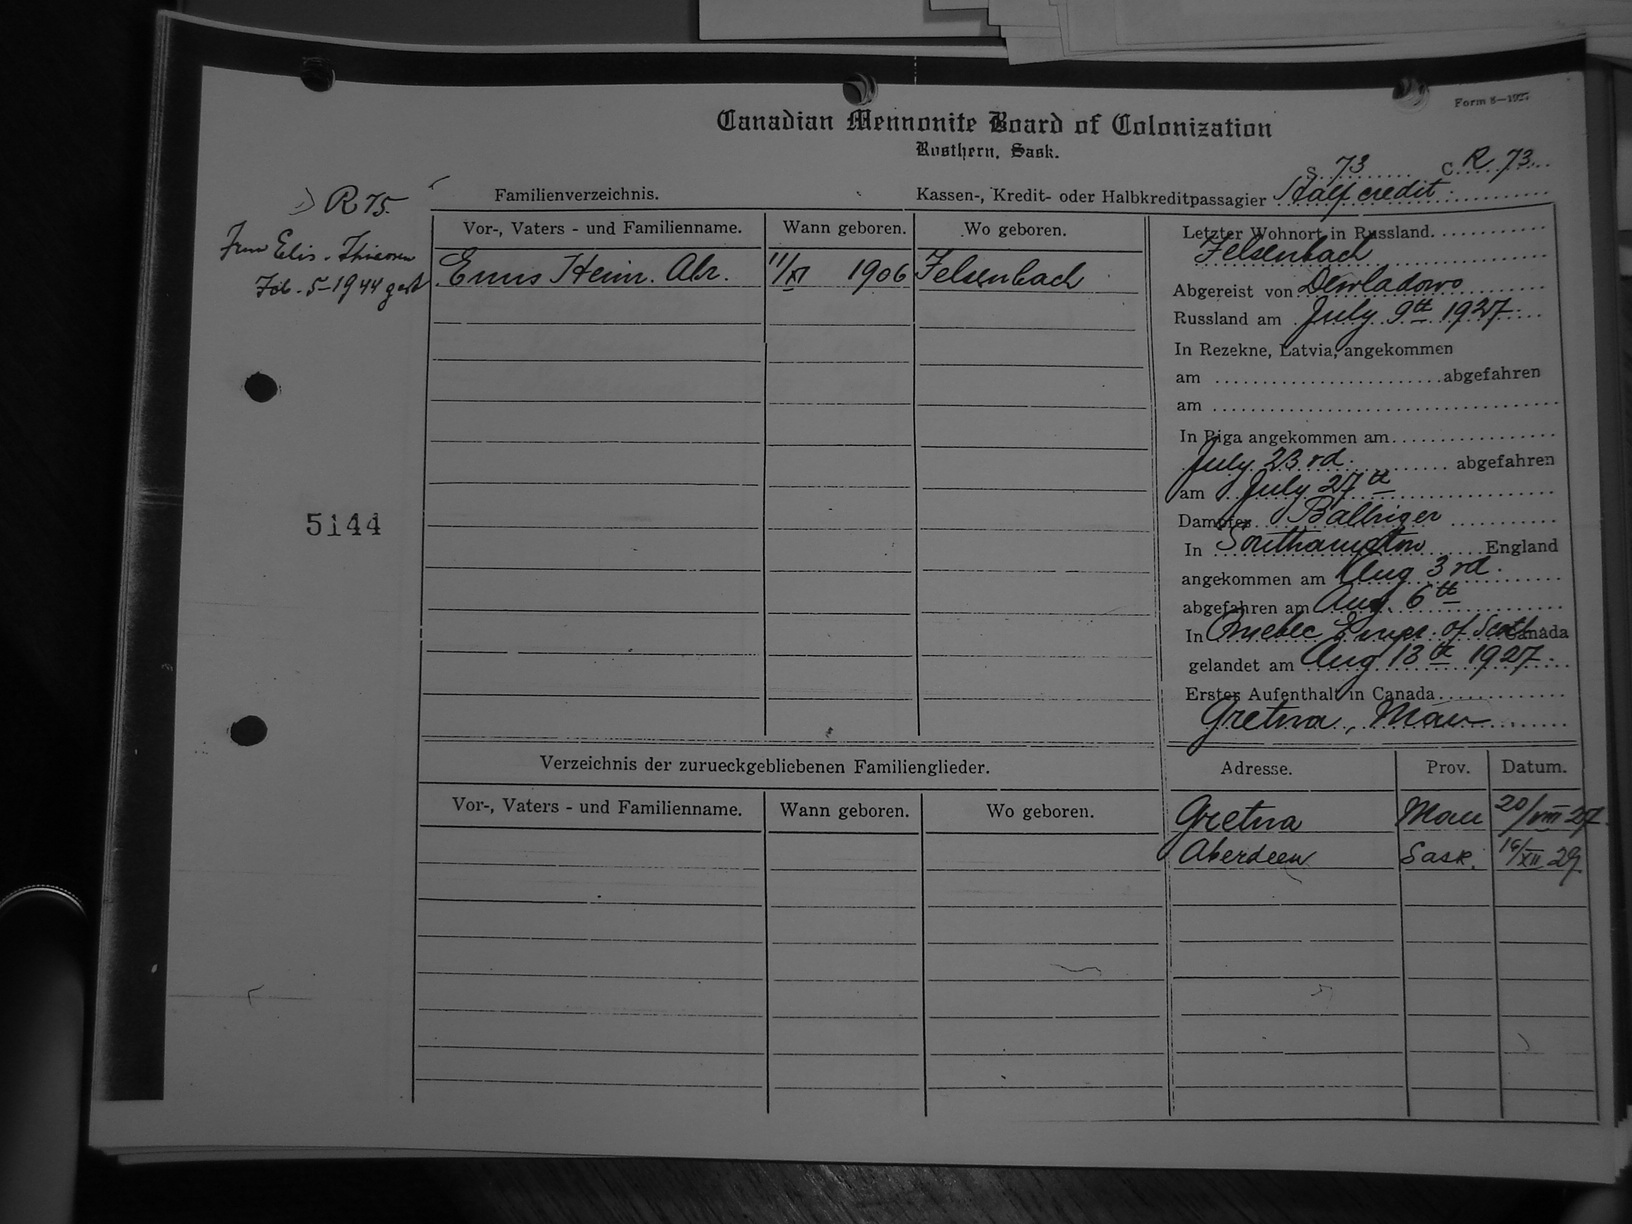 Form 8—1927
Canadian Mennonite Board of Colonization
Rosthern, Sask.
S. 73 C. R. 73
R 75.
Familienverzeichnis.
Kassen-, Kredit- oder Halbkreditpassagier Half credit
Frau Elis. Thiessen
Feb. 5-1944 gest.
Vor-, Vaters - und Familienname. Wann geboren. Wo geboren.
Enns Heinr. Abr. 11/XI 1906 Felsenbach
Letzter Wohnort in Russland
Felsenbach
Abgereist von Dewladowo
Russland am July 9th 1927
In Rezekne, Latvia, angekommen
am abgefahren
am
In Riga angekommen am
July 23rd. abgefahren
am July 27th
Dampfer Baltriger
In Southampton England
angekommen am Aug 3rd.
abgefahren am Aug. 6th
In Quebec Empr. of Scotl. Canada
gelandet am Aug 13th 1927
Erster Aufenthalt in Canada
Gretna, Man
5144
Verzeichnis der zurueckgebliebenen Familienglieder.
Vor-, Vaters - und Familienname. Wann geboren. Wo geboren.
Adresse. Prov. Datum.
Gretna Man 20/VIII 27.
Aberdeen Sask. 16/XII 29